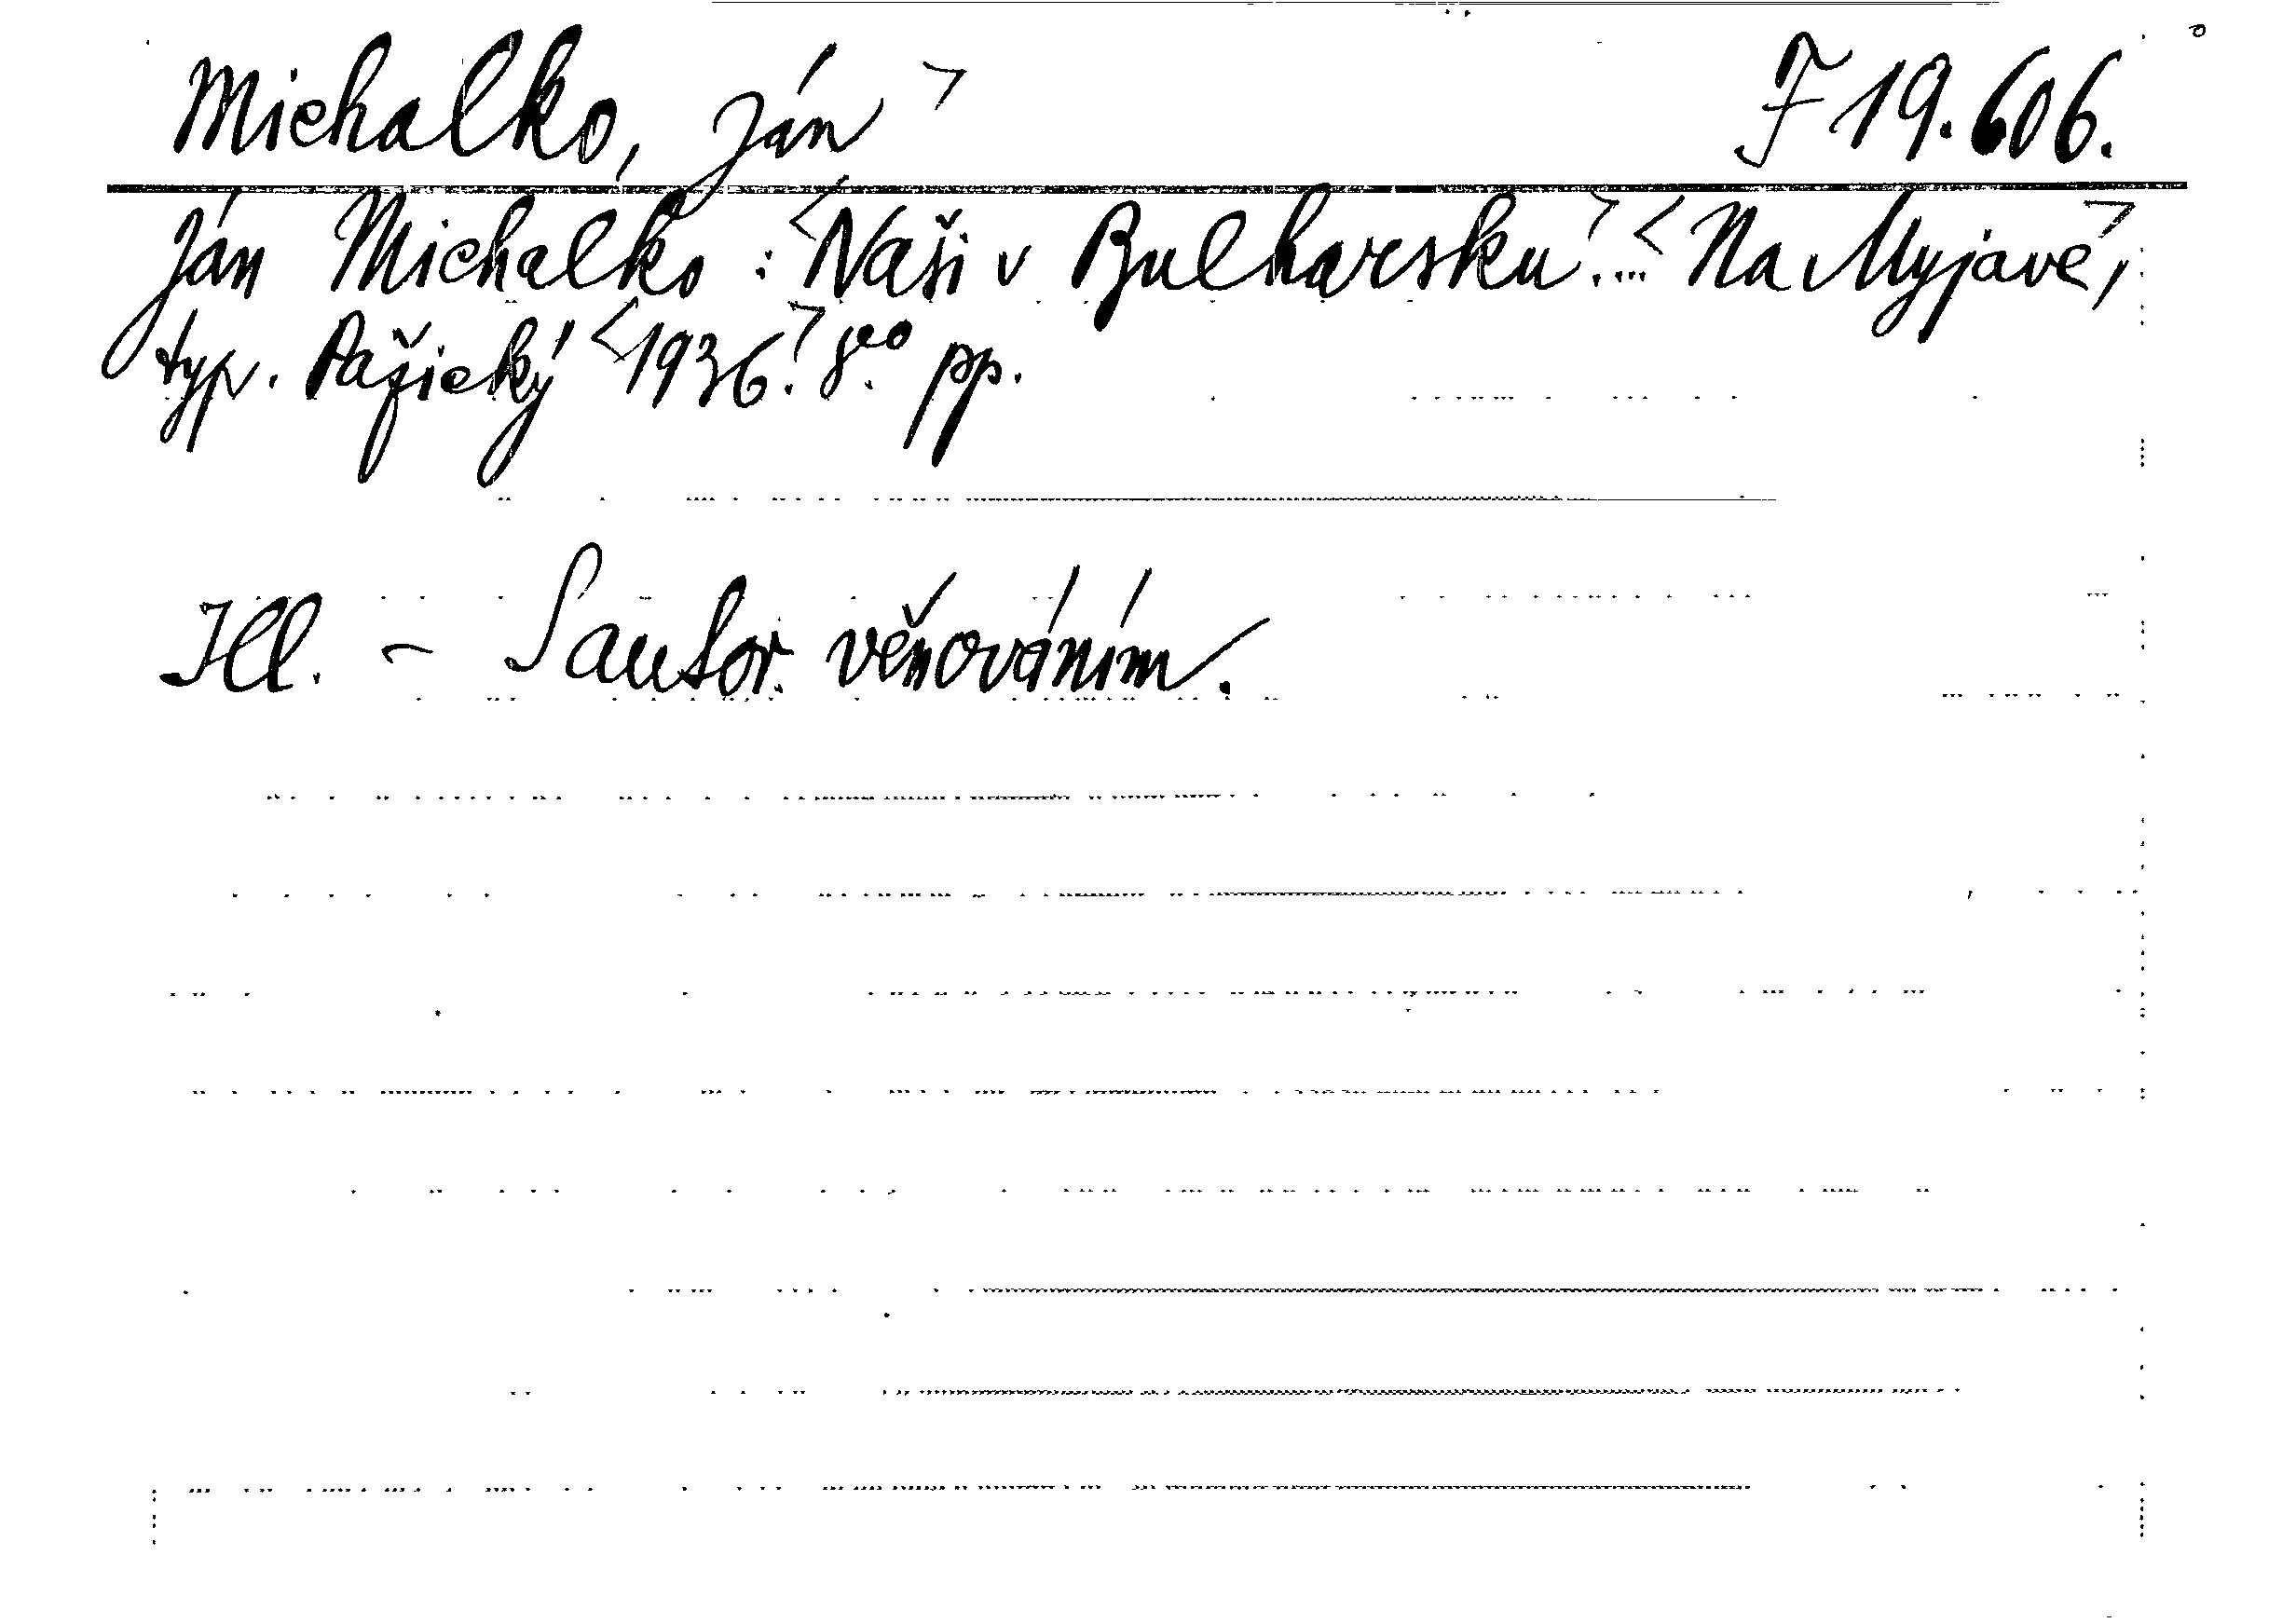 Michalko, Ján> F 19.606.
Ján Michalko: <Naši v Bulharsku>.... <Na Myjavě>,
typ. Pažický <1936>. 8⁰. pp.
Ill. – S autor. věnováním.